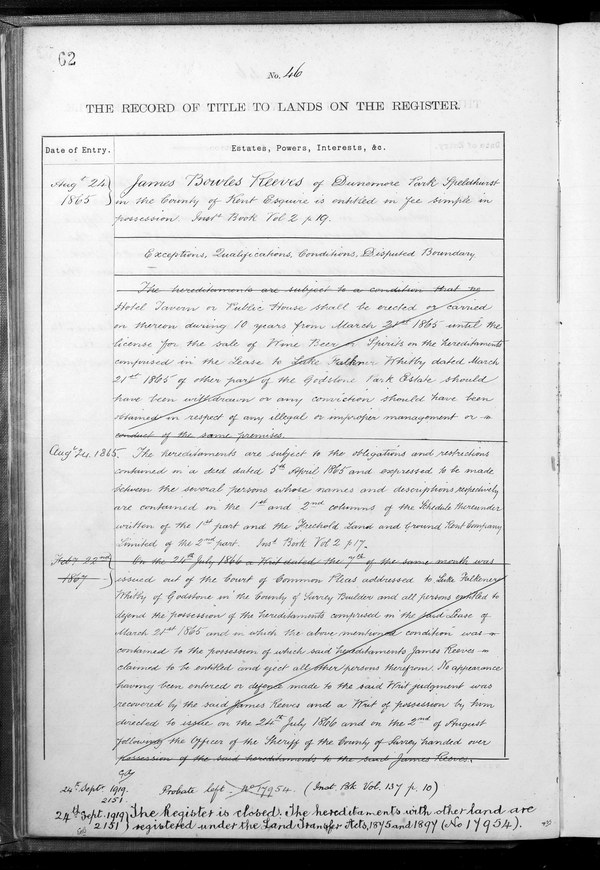 62
No. 46
THE RECORD OF TITLE TO LANDS ON THE REGISTER.
Date of Entry. Estates, Powers, Interests, &c.
Augt 24 James Bowles Reeves of Dunsmore Park Speldhurst
1865 in the County of Kent Esquire is entitled in fee simple in
possession Inst. Book Vol 2 p 19.
Exceptions, Qualifications, Conditions, Disputed Boundary
The hereditaments are subject to a condition that no
Hotel Tavern or Public House shall be erected or carried
on thereon during 10 years from March 21st 1865 until the
license for the sale of Wine Beer or Spirits on the hereditaments
comprised in the Lease to Luke Falkner Whitby dated March
21st 1865 of other part of the Godstone Park Estate should
have been withdrawn or any conviction should have been
obtained in respect of any illegal or improper management or
conduct of the same premises.
Augt 24. 1865. The hereditaments are subject to the obligations and restrictions
contained in a deed dated 5th April 1865 and expressed to be made
between the several persons whose names and descriptions respectively
are contained in the 1st and 2nd columns of the Schedule thereunder
written of the 1st part and the Freehold Land and Ground Rent Company
Limited of the 2nd part. Inst. Book Vol 2 p 17.
22nd On the 24th July 1866 a Writ dated the 7th of the same month was
1867 issued out of the Court of Common Pleas addressed to Luke Falkener
Whitby of Godstone in the County of Surrey Builder and all persons entitled to
defend the possession of the hereditaments comprised in the said Lease of
March 21st 1865 and in which the above mentioned condition was
contained to the possession of which said hereditaments James Reeves
claimed to be entitled and eject all other persons therefrom. No appearance
having been entered or defence made to the said Writ judgment was
recovered by the said James Reeves and a Writ of possession by him
directed to issue on the 24th July 1866 and on the 2nd of August
following the Officer of the Sheriff of the County of Surrey handed over
possession of the said hereditaments to the said James Reeves.
24th Septr 1919. Probate left No 17954. (Inst. Bk Vol. 137 p. 10)
2151.
24th Sept. 1919 The Register is closed. The hereditaments with other land are
2151 registered under the Land Transfer Acts, 1875 and 1897 (No 17954).